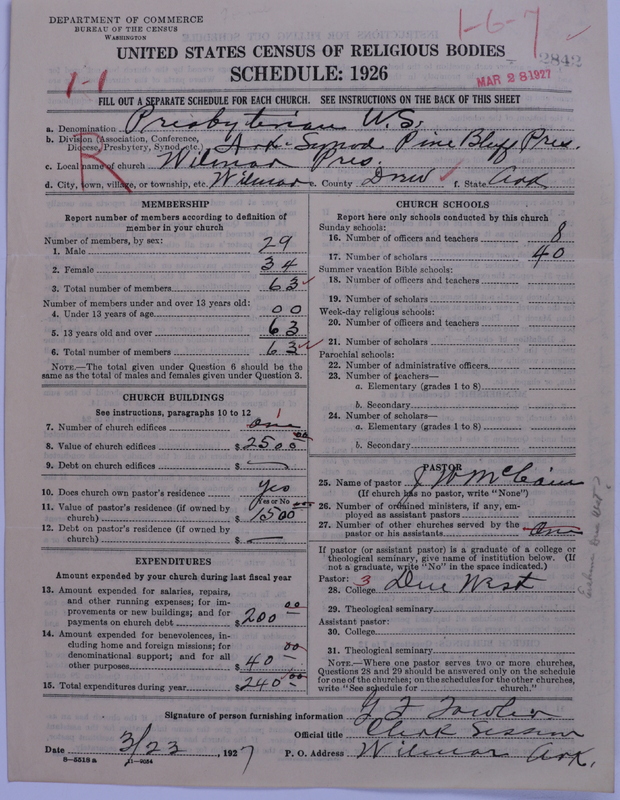 DEPARTMENT OF COMMERCE
BUREAU OF THE CENSUS
WASHINGTON
1-6-7
2842
UNITED STATES CENSUS OF RELIGIOUS BODIES
SCHEDULE: 1926
MAR 28 1927
1-1
FILL OUT A SEPARATE SCHEDULE FOR EACH CHURCH. SEE INSTRUCTIONS ON THE BACK OF THIS SHEET
R
a. Denomination Presbyterian U.S.
b. Division (Association, Conference, Diocese, Presbytery, Synod, etc.) Ark-Synod Pine Bluff Pres.
c. Local name of church Wilmar Pres.
d. City, town, village, or township, etc. Wilmar e. County Drew f. State Ark
MEMBERSHIP
Report number of members according to definition of
member in your church
Number of members, by sex:
1. Male 29
2. Female 34
3. Total number of members 63
Number of members under and over 13 years old:
4. Under 13 years of age 00
5. 13 years old and over 63
6. Total number of members 63
NOTE.—The total given under Question 6 should be
same as the total of males and females given under Question 3.
CHURCH BUILDINGS
See instructions, paragraphs 10 to 12
7. Number of church edifices one 1
8. Value of church edifices $2500 00
9. Debt on church edifices $ —
10. Does church own pastor's residence yes
Yes or No
11. Value of pastor's residence (if owned by
church) $1500 00
12. Debt on pastor's residence (if owned by
church) $ —
EXPENDITURES
Amount expended by your church during last fiscal year
13. Amount expended for salaries, repairs,
and other running expenses; for im-
provements or new buildings; and for
payments on church debt $200 00
14. Amount expended for benevolences, in-
cluding home and foreign missions; for
denominational support; and for all
other purposes $40 00
15. Total expenditures during year $240 00
CHURCH SCHOOLS
Report here only schools conducted by this church
Sunday schools:
16. Number of officers and teachers 8
17. Number of scholars 40
Summer vacation Bible schools:
18. Number of officers and teachers
19. Number of scholars
Week-day religious schools:
20. Number of officers and teachers
21. Number of scholars
Parochial schools:
22. Number of administrative officers
23. Number of teachers—
a. Elementary (grades 1 to 8)
b. Secondary
24. Number of scholars—
a. Elementary (grades 1 to 8)
b. Secondary
PASTOR
25. Name of pastor J W McClain
(If church has no pastor, write "None")
26. Number of ordained ministers, if any, em-
ployed as assistant pastors
27. Number of other churches served by the
pastor or his assistants One
If pastor (or assistant pastor) is a graduate of a college or
theological seminary, give name of institution below. (If
not a graduate, write "No" in the space indicated.)
Pastor: 3
28. College Due West
29. Theological seminary
Assistant pastor:
30. College
31. Theological seminary
NOTE.—Where one pastor serves two or more churches,
Questions 28 and 29 should be answered only on the schedule
for one of the churches; on the schedules for the other churches,
write "See schedule for ______ church."
Signature of person furnishing information G F Fowler
Official title Clerk Session
Date 3/23, 1927 P. O. Address Wilmar Ark.
8—5518 a 11—9034